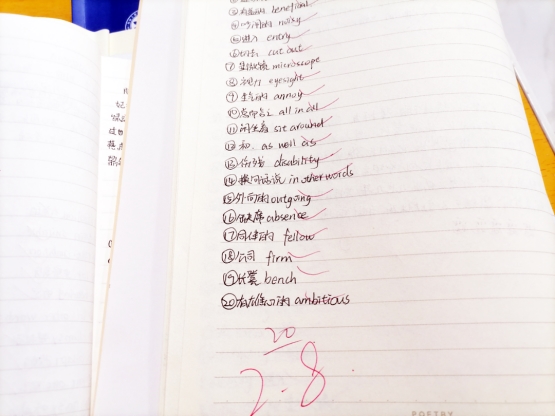 beneficial
noisy
⑤进入 entry
⑥切去 cut out
⑦显微镜 microscope
⑧视力 eyesight
⑨生气的 annoy
⑩总而言之 all in all
⑪闲坐着 sit around
⑫和 as well as
⑬伤残 disability
⑭换句话说 in other words
⑮外向的 outgoing
⑯缺席 absence
⑰同伴的 fellow
⑱公司 firm
⑲长凳 bench
⑳有雄心的 ambitious
20
2.8
POETRY